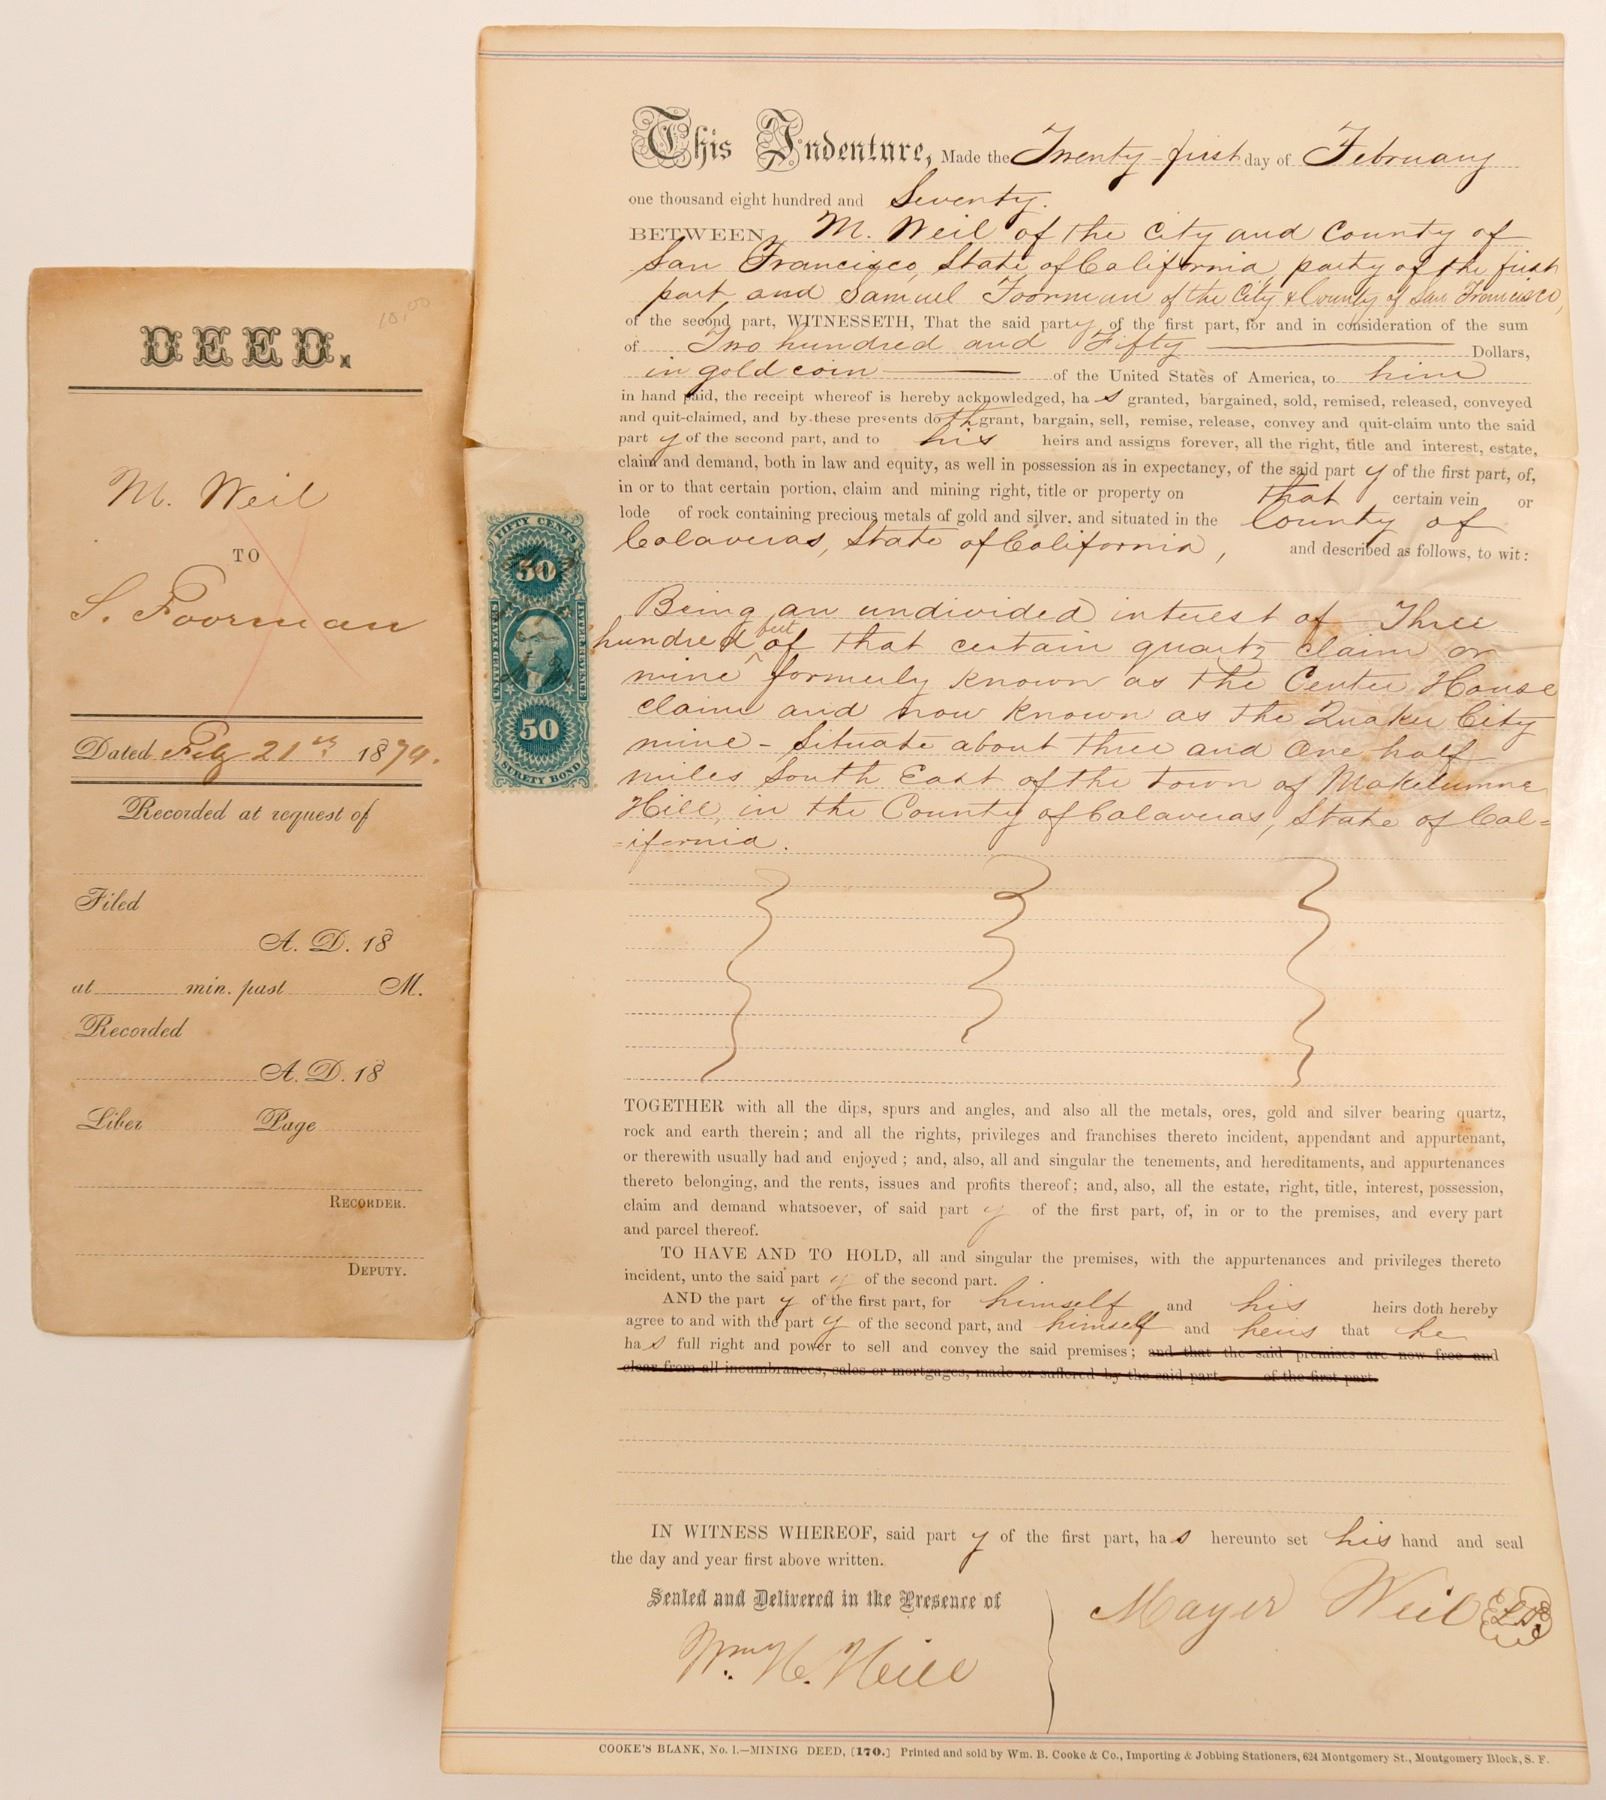 10.00
DEED.
M. Weil
TO
S. Foorman
Dated Feb 21st 1870.
Recorded at request of
Filed
A. D. 18
at min. past M.
Recorded
A. D. 18
Liber Page
RECORDER.
DEPUTY.
This Indenture, Made the Twenty-first day of February
one thousand eight hundred and Seventy.
BETWEEN M. Weil of the City and County of
San Francisco, State of California, party of the first
part and Samuel Foorman of the City & County of San Francisco,
of the second part, WITNESSETH, That the said party of the first part, for and in consideration of the sum
of Two hundred and Fifty Dollars,
in gold coin of the United States of America, to him
in hand paid, the receipt whereof is hereby acknowledged, has granted, bargained, sold, remised, released, conveyed
and quit-claimed, and by these presents doth grant, bargain, sell, remise, release, convey and quit-claim unto the said
party of the second part, and to his heirs and assigns forever, all the right, title and interest, estate,
claim and demand, both in law and equity, as well in possession as in expectancy, of the said party of the first part, of,
in or to that certain portion, claim and mining right, title or property on that certain vein or
lode of rock containing precious metals of gold and silver, and situated in the County of
Calaveras, State of California, and described as follows, to wit:
Being an undivided interest of Three
hundred feet of that certain quartz claim or
mine formerly known as the Center House
claim and now known as the Quaker City
mine - Situate about three and one half
miles South East of the town of Mokelumne
Hill, in the County of Calaveras, State of Cal=
=ifornia.
FIFTY CENTS
50
UNITED STATES
INTER. REVENUE
50
SURETY BOND
TOGETHER with all the dips, spurs and angles, and also all the metals, ores, gold and silver bearing quartz,
rock and earth therein; and all the rights, privileges and franchises thereto incident, appendant and appurtenant,
or therewith usually had and enjoyed; and, also, all and singular the tenements, and hereditaments, and appurtenances
thereto belonging, and the rents, issues and profits thereof; and, also, all the estate, right, title, interest, possession,
claim and demand whatsoever, of said party of the first part, of, in or to the premises, and every part
and parcel thereof.
TO HAVE AND TO HOLD, all and singular the premises, with the appurtenances and privileges thereto
incident, unto the said party of the second part.
AND the party of the first part, for himself and his heirs doth hereby
agree to and with the party of the second part, and himself and heirs that he
has full right and power to sell and convey the said premises; and that the said premises are now free and
clear from all incumbrances, sales or mortgages, made or suffered by the said part of the first part.
IN WITNESS WHEREOF, said party of the first part, has hereunto set his hand and seal
the day and year first above written.
Sealed and Delivered in the Presence of
Wm. H. Heill
Mayer Weil L.S.
COOKE'S BLANK, No. 1.—MINING DEED, [170.] Printed and sold by Wm. B. Cooke & Co., Importing & Jobbing Stationers, 624 Montgomery St., Montgomery Block, S. F.